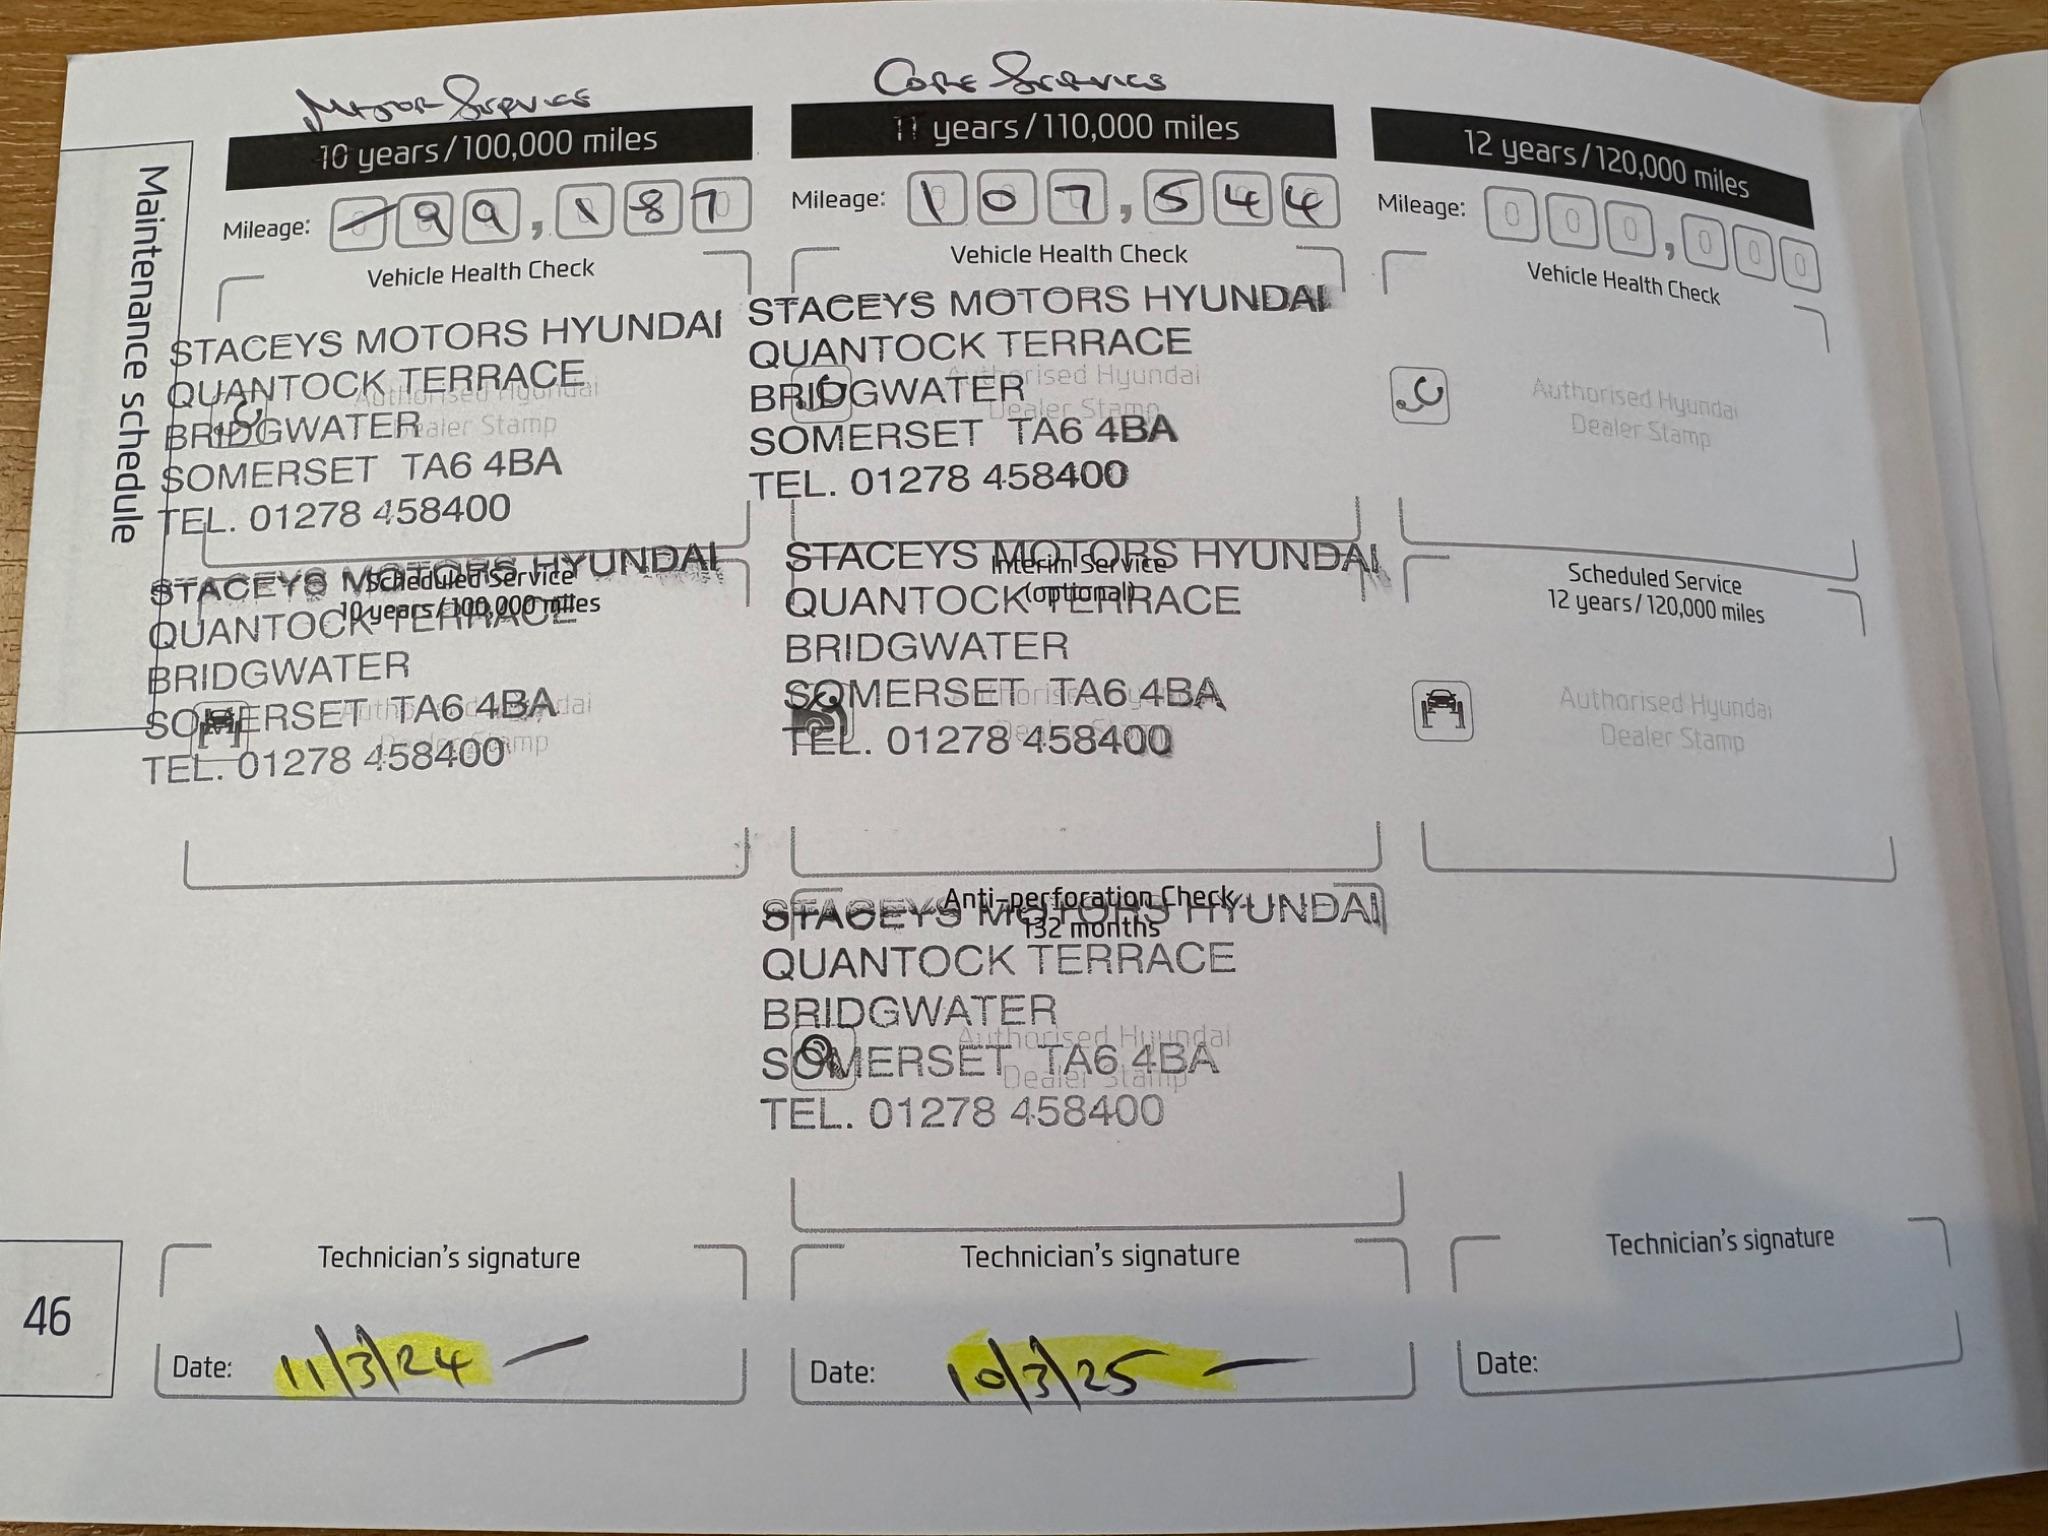 Maintenance schedule
Major Service
10 years/100,000 miles
Mileage: -99,187
Vehicle Health Check
Authorised Hyundai
Dealer Stamp
STACEYS MOTORS HYUNDAI
QUANTOCK TERRACE
BRIDGWATER
SOMERSET TA6 4BA
TEL. 01278 458400
Scheduled Service
10 years/100,000 miles
Authorised Hyundai
Dealer Stamp
STACEYS MOTORS HYUNDAI
QUANTOCK TERRACE
BRIDGWATER
SOMERSET TA6 4BA
TEL. 01278 458400
Technician's signature
Date: 11/3/24 —
Core Service
11 years/110,000 miles
Mileage: 107,544
Vehicle Health Check
Authorised Hyundai
Dealer Stamp
STACEYS MOTORS HYUNDAI
QUANTOCK TERRACE
BRIDGWATER
SOMERSET TA6 4BA
TEL. 01278 458400
Interim Service
(optional)
Authorised Hyundai
Dealer Stamp
STACEYS MOTORS HYUNDAI
QUANTOCK TERRACE
BRIDGWATER
SOMERSET TA6 4BA
TEL. 01278 458400
Anti-perforation Check
132 months
Authorised Hyundai
Dealer Stamp
STACEYS MOTORS HYUNDAI
QUANTOCK TERRACE
BRIDGWATER
SOMERSET TA6 4BA
TEL. 01278 458400
Technician's signature
Date: 10/3/25 —
12 years/120,000 miles
Mileage: 000,000
Vehicle Health Check
Authorised Hyundai
Dealer Stamp
Scheduled Service
12 years/120,000 miles
Authorised Hyundai
Dealer Stamp
Technician's signature
Date:
46